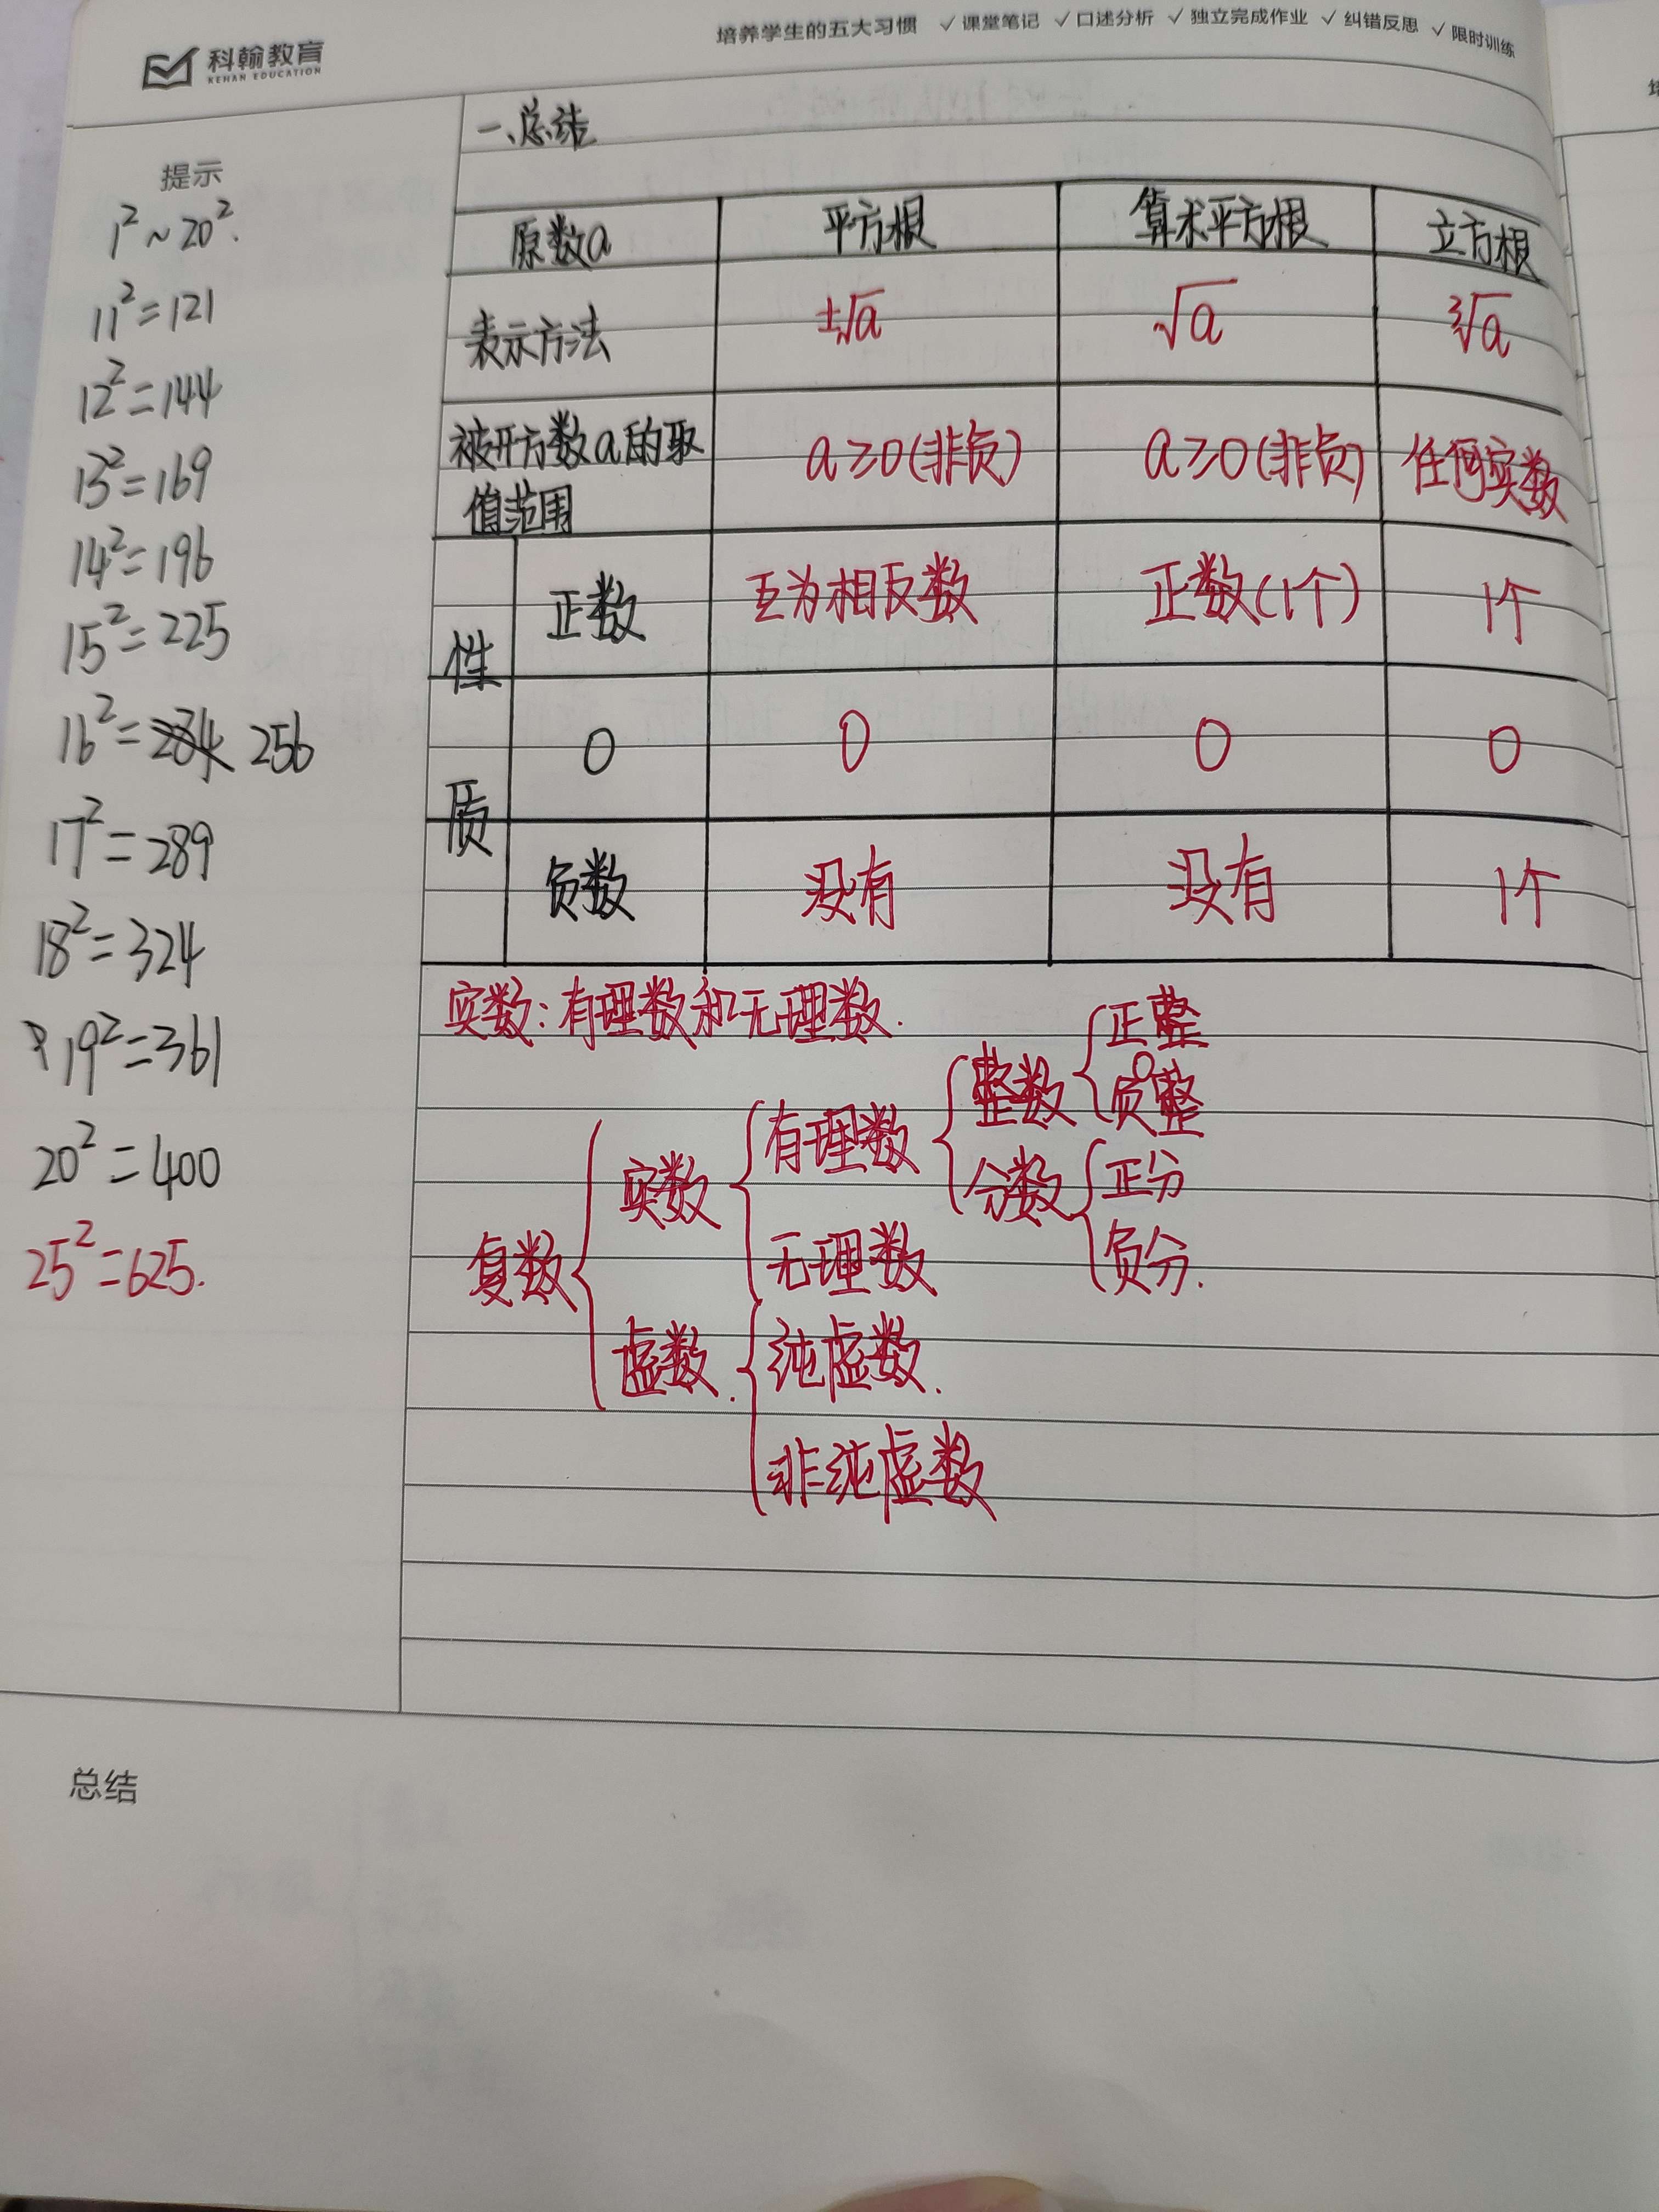 科翰教育
KEHAN EDUCATION
培养学生的五大习惯 ✓课堂笔记 ✓口述分析 ✓独立完成作业 ✓纠错反思 ✓限时训练
提示
1²~20².
11²=121
12²=144
13²=169
14²=196
15²=225
16²=284 256
17²=289
18²=324
19²=361
20²=400
25²=625.
一、总结
原数a 平方根 算术平方根 立方根
表示方法 ±√a √a ³√a
被开方数a的取值范围 a≥0(非负) a≥0(非负) 任何实数
性质
正数 互为相反数 正数(1个) 1个
0 0 0 0
负数 没有 没有 1个
实数:有理数和无理数.
复数
实数
有理数
整数
正整
0
负整
分数
正分
负分.
无理数
虚数.
纯虚数.
非纯虚数
总结